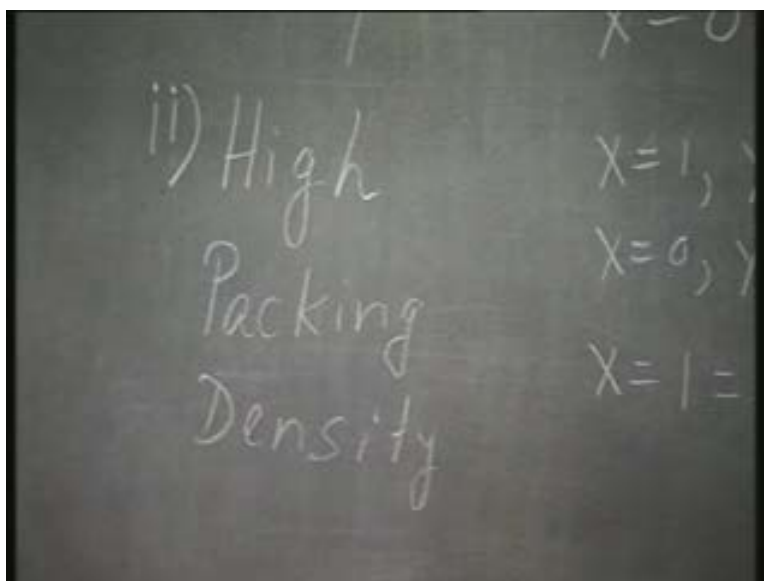 X - 0
ii) High
Packing
Density
X = 1,
X = 0, y
X = 1 =